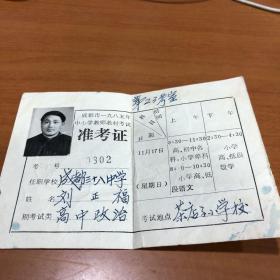 第二三考室
成都市一九八五年
中小学教师教材考试
准考证
考号 0302
任职学校 成都三十八中学
姓名 刘正福
期考试类 高中政治
科目 时间 日期
上午
下午
8:30—11:30
2:30—4:30
11月17日
(星期日)
高、初中各科，小学单科
小学高、低段语文
小学高、低段数学
考试地点 茶店子小学校